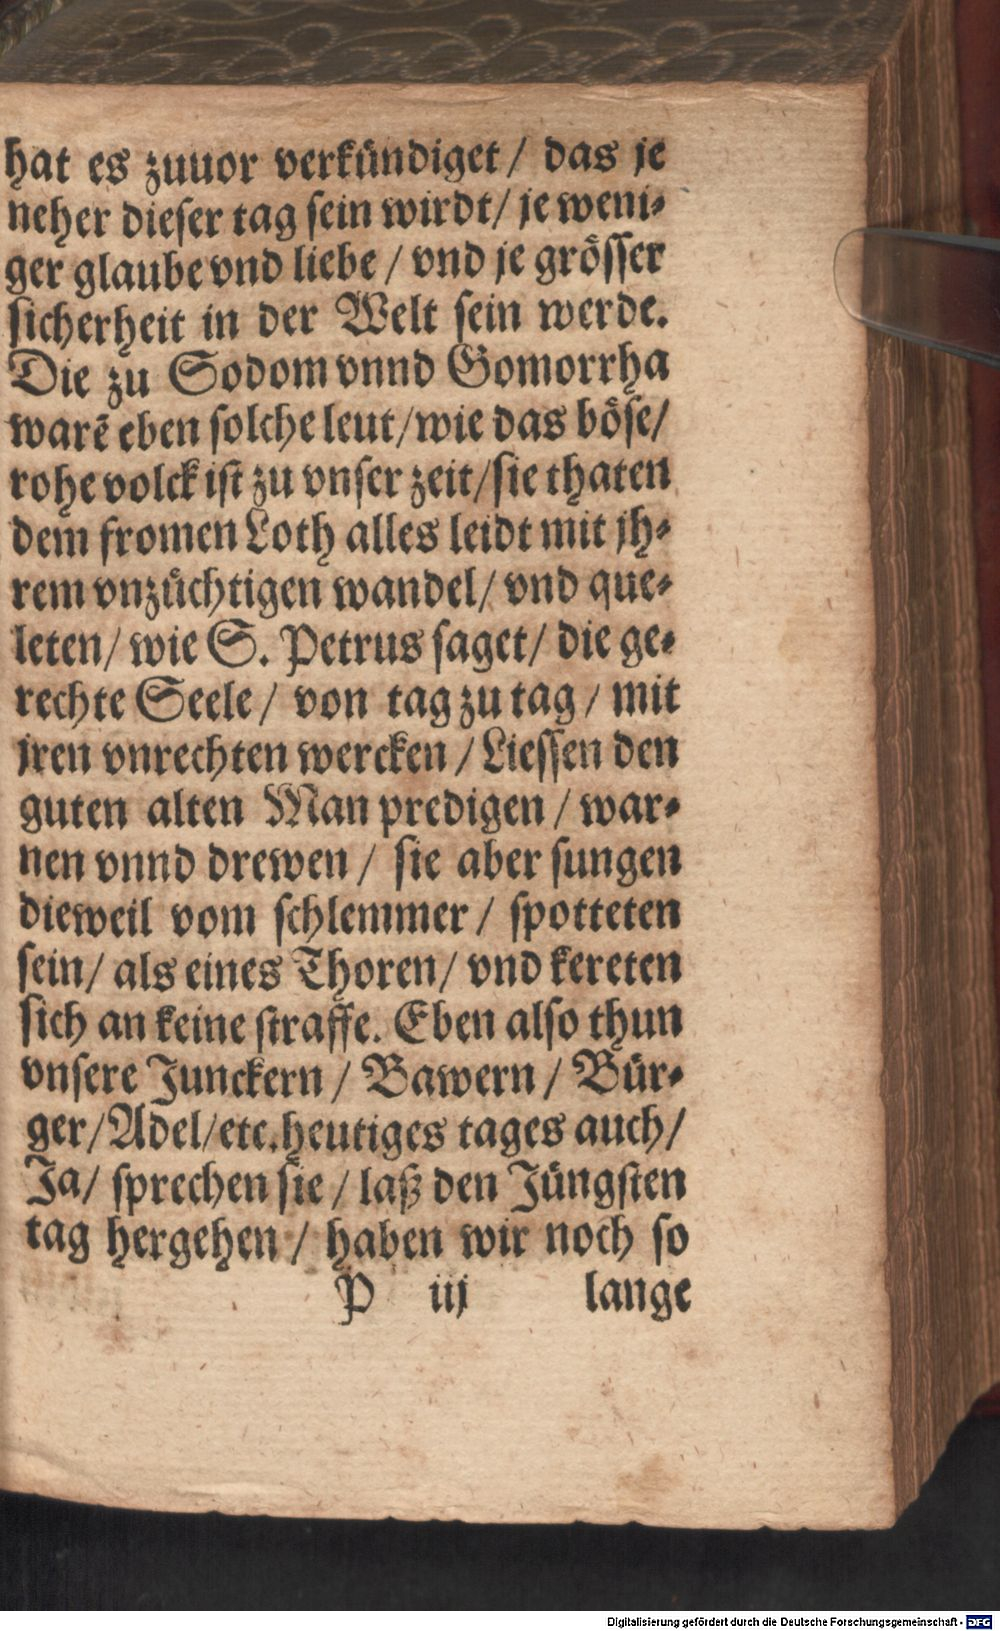 hat es zuuor verkündiget / das je
neher dieser tag sein wirdt / je weni-
ger glaube vnd liebe / vnd je grösser
sicherheit in der Welt sein werde.
Die zu Sodom vnnd Gomorrha
warẽ eben solche leut / wie das böse /
rohe volck ist zu vnser zeit / sie thaten
dem fromen Loth alles leidt mit jh-
rem vnzüchtigen wandel / vnd que-
leten / wie S. Petrus saget / die ge-
rechte Seele / von tag zu tag / mit
jren vnrechten wercken / Liessen den
guten alten Man predigen / war-
nen vnnd drewen / sie aber sungen
dieweil vom schlemmer / spotteten
sein / als eines Thoren / vnd kereten
sich an keine straffe. Eben also thun
vnsere Junckern / Bawern / Bür-
ger / Adel / etc. heutiges tages auch /
Ja / sprechen sie / laß den Jüngsten
tag hergehen / haben wir noch so
P iij lange
Digitalisierung gefördert durch die Deutsche Forschungsgemeinschaft - DFG